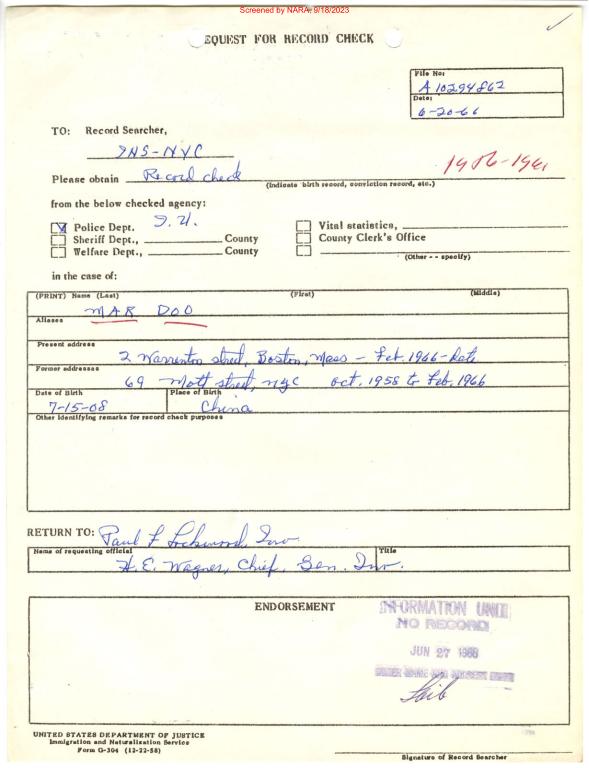 Screened by NARA, 9/18/2023
REQUEST FOR RECORD CHECK
File No:
A 10294862
Date:
6-20-66
TO: Record Searcher,
INS-NYC
Please obtain Record check
(Indicate birth record, conviction record, etc.)
from the below checked agency:
Police Dept. Vital statistics,
Sheriff Dept., County County Clerk's Office
Welfare Dept., County
(Other - - specify)
in the case of:
(PRINT) Name (Last) (First) (Middle)
MAR DOO
Aliases
Present address
2 Warrenton street, Boston, Mass - Feb. 1966 - date
Former addresses
69 Mott street, NYC Oct. 1958 to Feb. 1966
Date of Birth Place of Birth
7-15-08 China
Other identifying remarks for record check purposes
RETURN TO: Paul F Lockwood, Inv.
Name of requesting official Title
H. E. Wagner, Chief, Gen. Inv.
ENDORSEMENT
INFORMATION UNIT
NO RECORD
JUN 27 1966
UNITED STATES DEPARTMENT OF JUSTICE
Immigration and Naturalization Service
Form G-304 (12-22-58)
Signature of Record Searcher